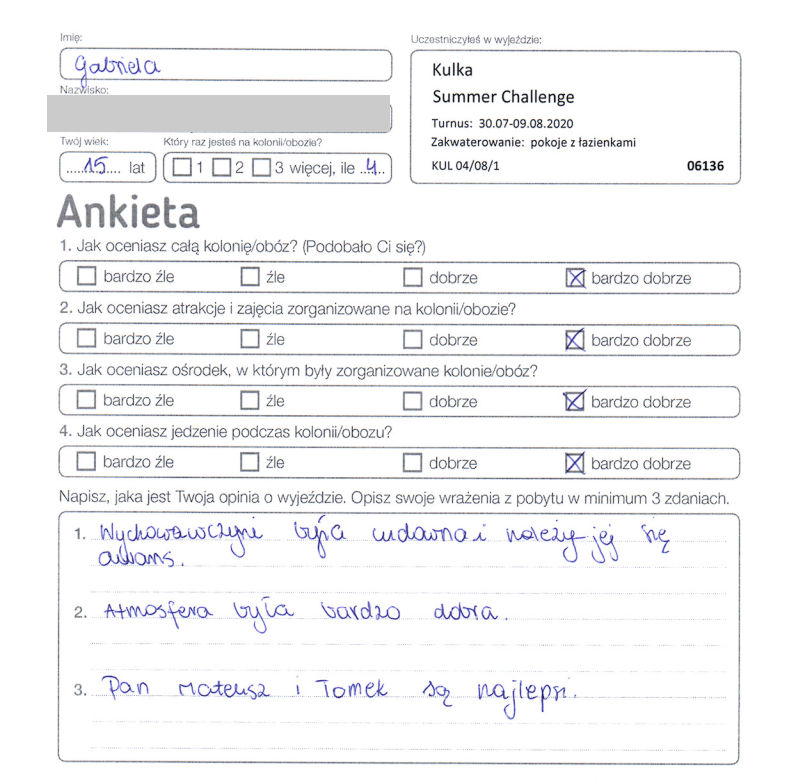 Imię:
Gabriela
Nazwisko:
Twój wiek:
.....15.... lat
Który raz jesteś na kolonii/obozie?
1 2 3 więcej, ile ..4..
Uczestniczyłeś w wyjeździe:
Kulka
Summer Challenge
Turnus: 30.07-09.08.2020
Zakwaterowanie: pokoje z łazienkami
KUL 04/08/1 06136
Ankieta
1. Jak oceniasz całą kolonię/obóz? (Podobało Ci się?)
bardzo źle źle dobrze bardzo dobrze
2. Jak oceniasz atrakcje i zajęcia zorganizowane na kolonii/obozie?
bardzo źle źle dobrze bardzo dobrze
3. Jak oceniasz ośrodek, w którym były zorganizowane kolonie/obóz?
bardzo źle źle dobrze bardzo dobrze
4. Jak oceniasz jedzenie podczas kolonii/obozu?
bardzo źle źle dobrze bardzo dobrze
Napisz, jaka jest Twoja opinia o wyjeździe. Opisz swoje wrażenia z pobytu w minimum 3 zdaniach.
1. Wychowawczyni była cudowna i należy jej się
awans.
2. Atmosfera była bardzo dobra.
3. Pan Mateusz i Tomek są najlepsi.